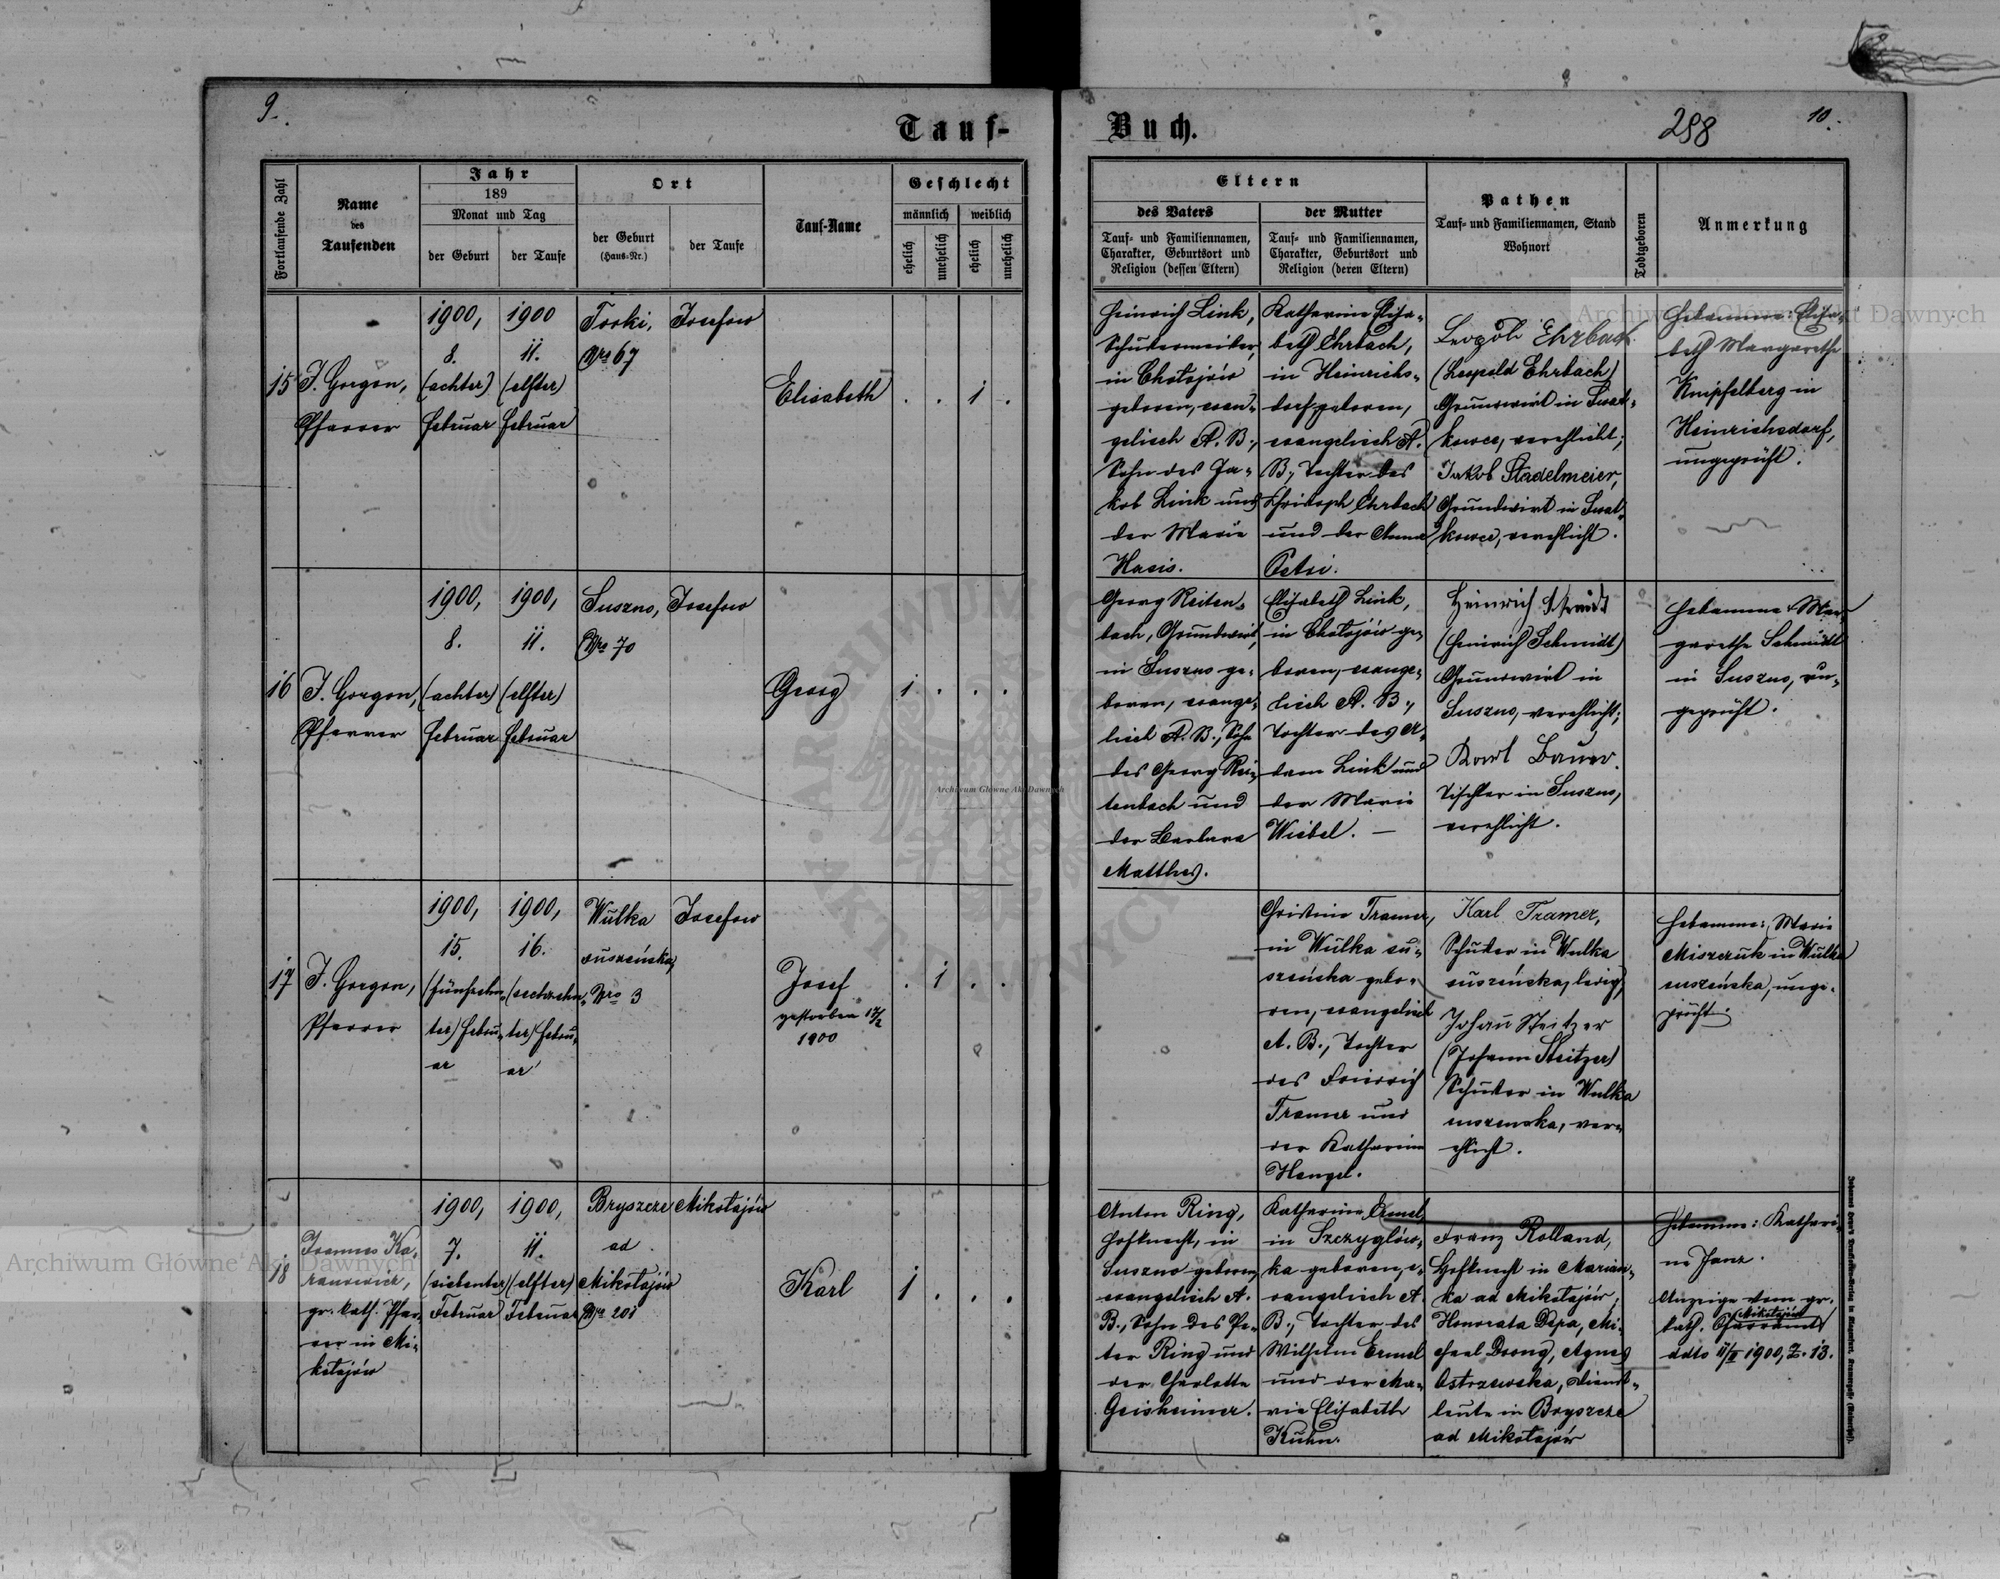 9.
Tauf-
Fortlaufende Zahl
Name
des
Taufenden
Jahr
189
Monat und Tag
der Geburt
der Taufe
Ort
der Geburt
(Haus-Nr.)
der Taufe
Tauf-Name
Geschlecht
männlich
weiblich
ehelich
unehelich
ehelich
unehelich
15
J. Gorgon,
Pfarrer
1900,
8.
(achter)
Februar
1900
11.
(elfter)
Februar
Toski,
Nro 67
Josefow
Elisabeth
. . 1 .
16
J. Gorgon,
Pfarrer
1900,
8.
(achter)
Februar
1900,
11.
(elfter)
Februar
Suszno,
Nro 70
Josefow
Georg
1 . . .
17
J. Gorgon,
Pfarrer
1900,
15.
(fünfzehn-
ter) Febru-
ar
1900,
16.
(sechzehn-
ter) Febru-
ar
Wulka
suszeńska,
Nro 3
Josefow
Josef
gestorben 17/2
1900
. 1 . .
18
Joannes Ka-
ranowicz,
gr. kath. Pfar-
rer in Mi-
kołajów
1900,
7.
(siebenter)
Februar
1900,
11.
(elfter)
Februar
Bryszcze
ad
Mikołajów
Nro 201
Mikołajów
Karl
1 . . .
Buch.
298
10.
Eltern
des Vaters
Tauf- und Familiennamen,
Charakter, Geburtsort und
Religion (dessen Eltern)
der Mutter
Tauf- und Familiennamen,
Charakter, Geburtsort und
Religion (deren Eltern)
Pathen
Tauf- und Familiennamen, Stand
Wohnort
Todtgeboren
Anmerkung
Heinrich Link,
Schustermeister,
in Chołojów
geboren, evan-
gelisch A. B.,
Sohn des Ja-
kob Link und
der Marie
Hasis.
Katharina Elisa-
beth Ehrbach,
in Heinrichs-
dorf geboren,
evangelisch A.
B., Tochter des
Christoph Ehrbach
und der Anna
Petri.
Leopold Ehrbach
(Leopold Ehrbach)
Grundwirt in Swat-
kowce, verehlicht;
Jakob Stadelmeier,
Grundwirt in Swat-
kowce, verehlicht.
Hebamme: Elisa-
beth Margarethe
Knipfelberg in
Heinrichsdorf,
ungeprüft.
Georg Reiten-
bach, Grundwirt,
in Suszno ge-
boren, evange-
lisch A. B., Sohn
des Georg Rei-
tenbach und
der Barbara
Matthes.
Elisabeth Link,
in Chołojów ge-
boren, evange-
lisch A. B.,
Tochter des A-
dam Link und
der Marie
Wiebel. —
Heinrich
(Heinrich Schmidt)
Grundwirt in
Suszno, verehlicht;
Karl Bauer.
Tischler in Suszno,
verehlicht.
Hebamme: Mar-
garethe Schmidt
in Suszno, un-
geprüft.
Christine Tramer,
in Wulka su-
szeńska gebo-
ren, evangelisch
A. B., Tochter
des Friedrich
Tramer und
der Katharina
Hengel.
Karl Tramer,
Schuster in Wulka
suszeńska, ledig;
Johan Steitzer
(Johann Steitzer)
Schuster in Wulka
suszenska, ver-
ehlicht.
Hebamme: Marie
Miszczuk in Wulka
suszeńska, unge-
prüft.
Anton Ring,
Hofknecht, in
Suszno geboren,
evangelisch A.
B., Sohn des Pe-
ter Ring und
der Charlotte
Geisheimer.
Katharina Ermel,
in Szczygłów-
ka geboren, e-
vangelisch A.
B., Tochter des
Wilhelm Ermel
und der Ma-
rie Elisabeth
Kuhn.
Franz Rolland,
Hofknecht in Marian-
ka ad Mikołajów,
Honorata Depa, Mi-
chael Drong, Agnes
Ostrzewska, Dienst-
leute in Bryszcze
ad Mikołajów
Hebamme: Kathari-
na Janz.
Anzeige vom gr.
kath. Pfarramt
Mikołajów
ddto 11/II 1900, Z. 13.
Archiwum Główne Akt Dawnych
Archiwum Główne Akt Dawnych
Archiwum Główne Akt Dawnych